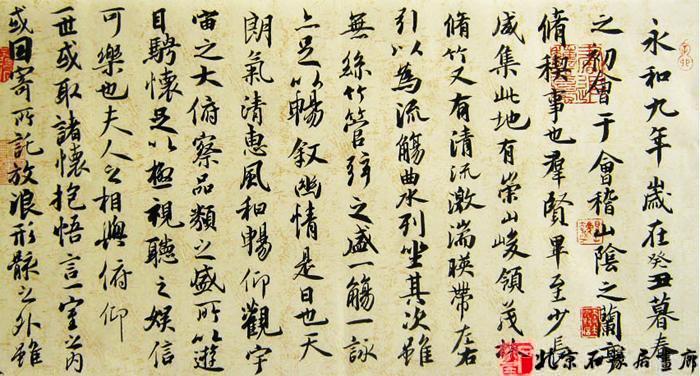 永和九年歲在癸丑暮春
之初會于會稽山陰之蘭亭
脩稧事也羣賢畢至少長
咸集此地有崇山峻領茂林
脩竹又有清流激湍暎帶左右
引以為流觴曲水列坐其次雖
無絲竹管弦之盛一觴一詠
亦足以暢敘幽情是日也天
朗氣清惠風和暢仰觀宇
宙之大俯察品類之盛所以遊
目騁懷足以極視聽之娛信
可樂也夫人之相與俯仰
一世或取諸懷抱悟言一室之內
或因寄所託放浪形骸之外雖
北京石豫居畫廊